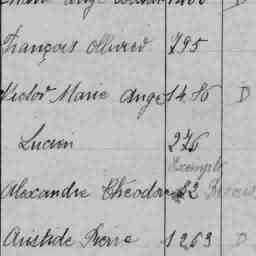 François Ollivier 795
Victor Marie Ange 1486 D
Lucien 276
Exempt
Alexandre Théodore 82
Aristide Pierre 1263 D